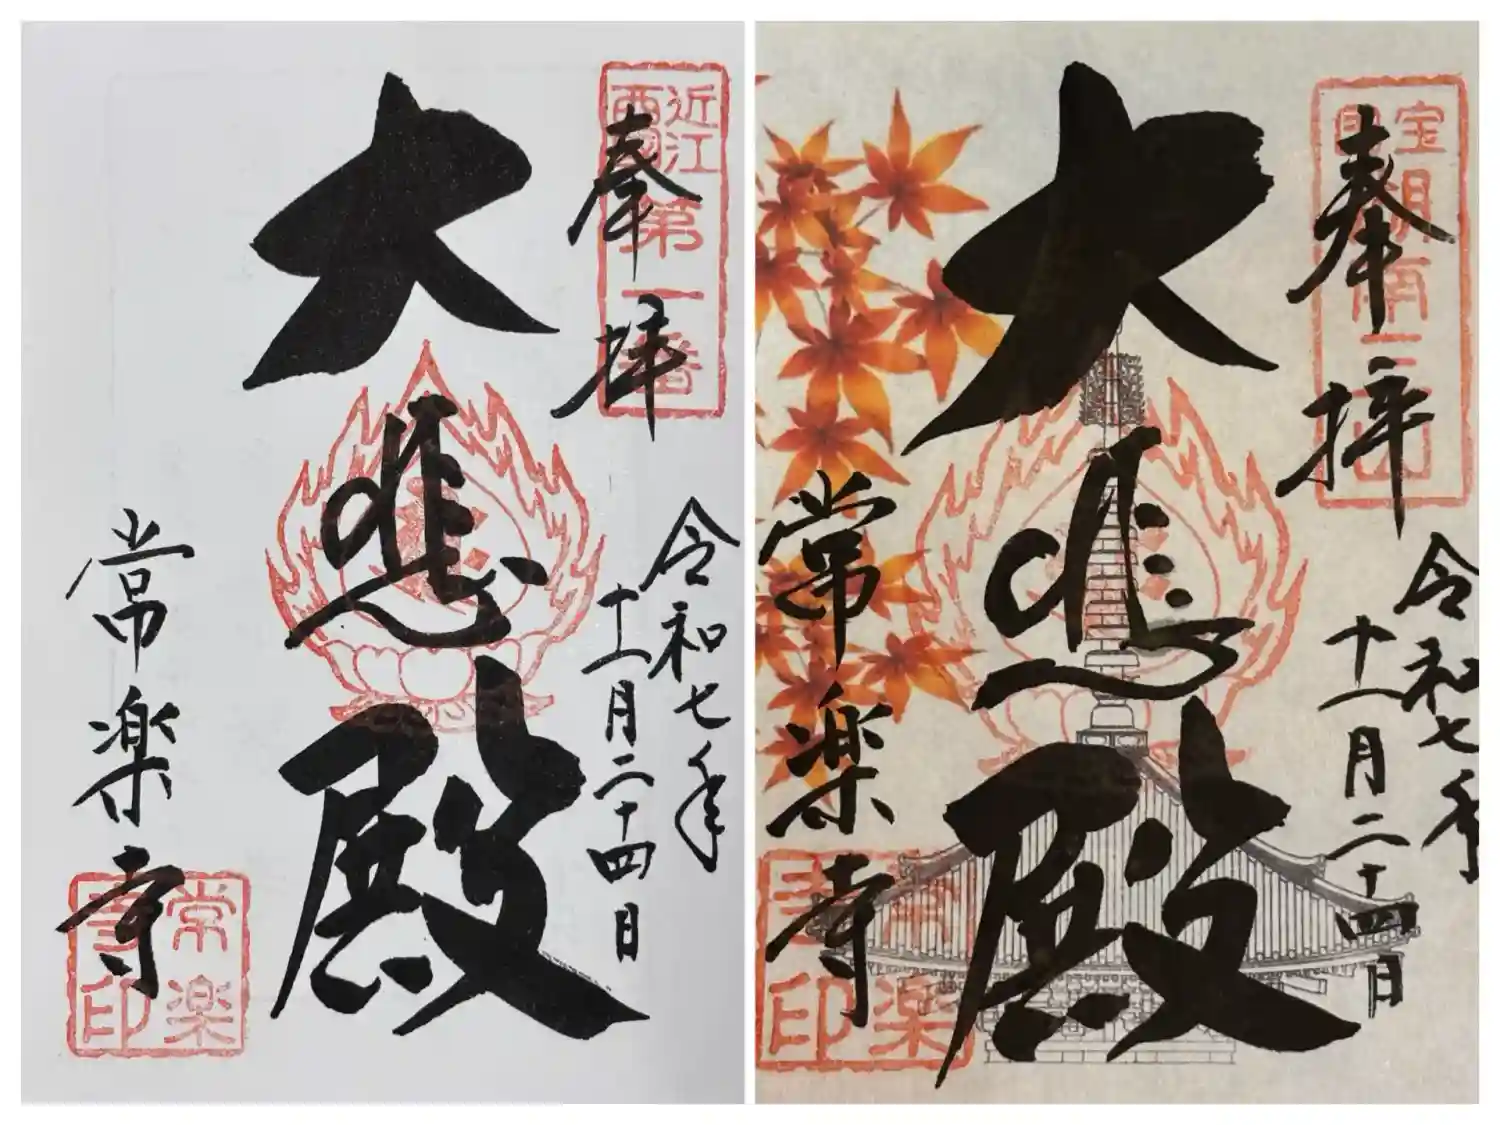 近江
西国
第一番
奉拝
令和七年
十一月二十四日
大悲殿
常楽寺
常楽
寺印
奉拝
令和七年
十一月二十四日
大悲殿
常楽寺
常楽
寺印